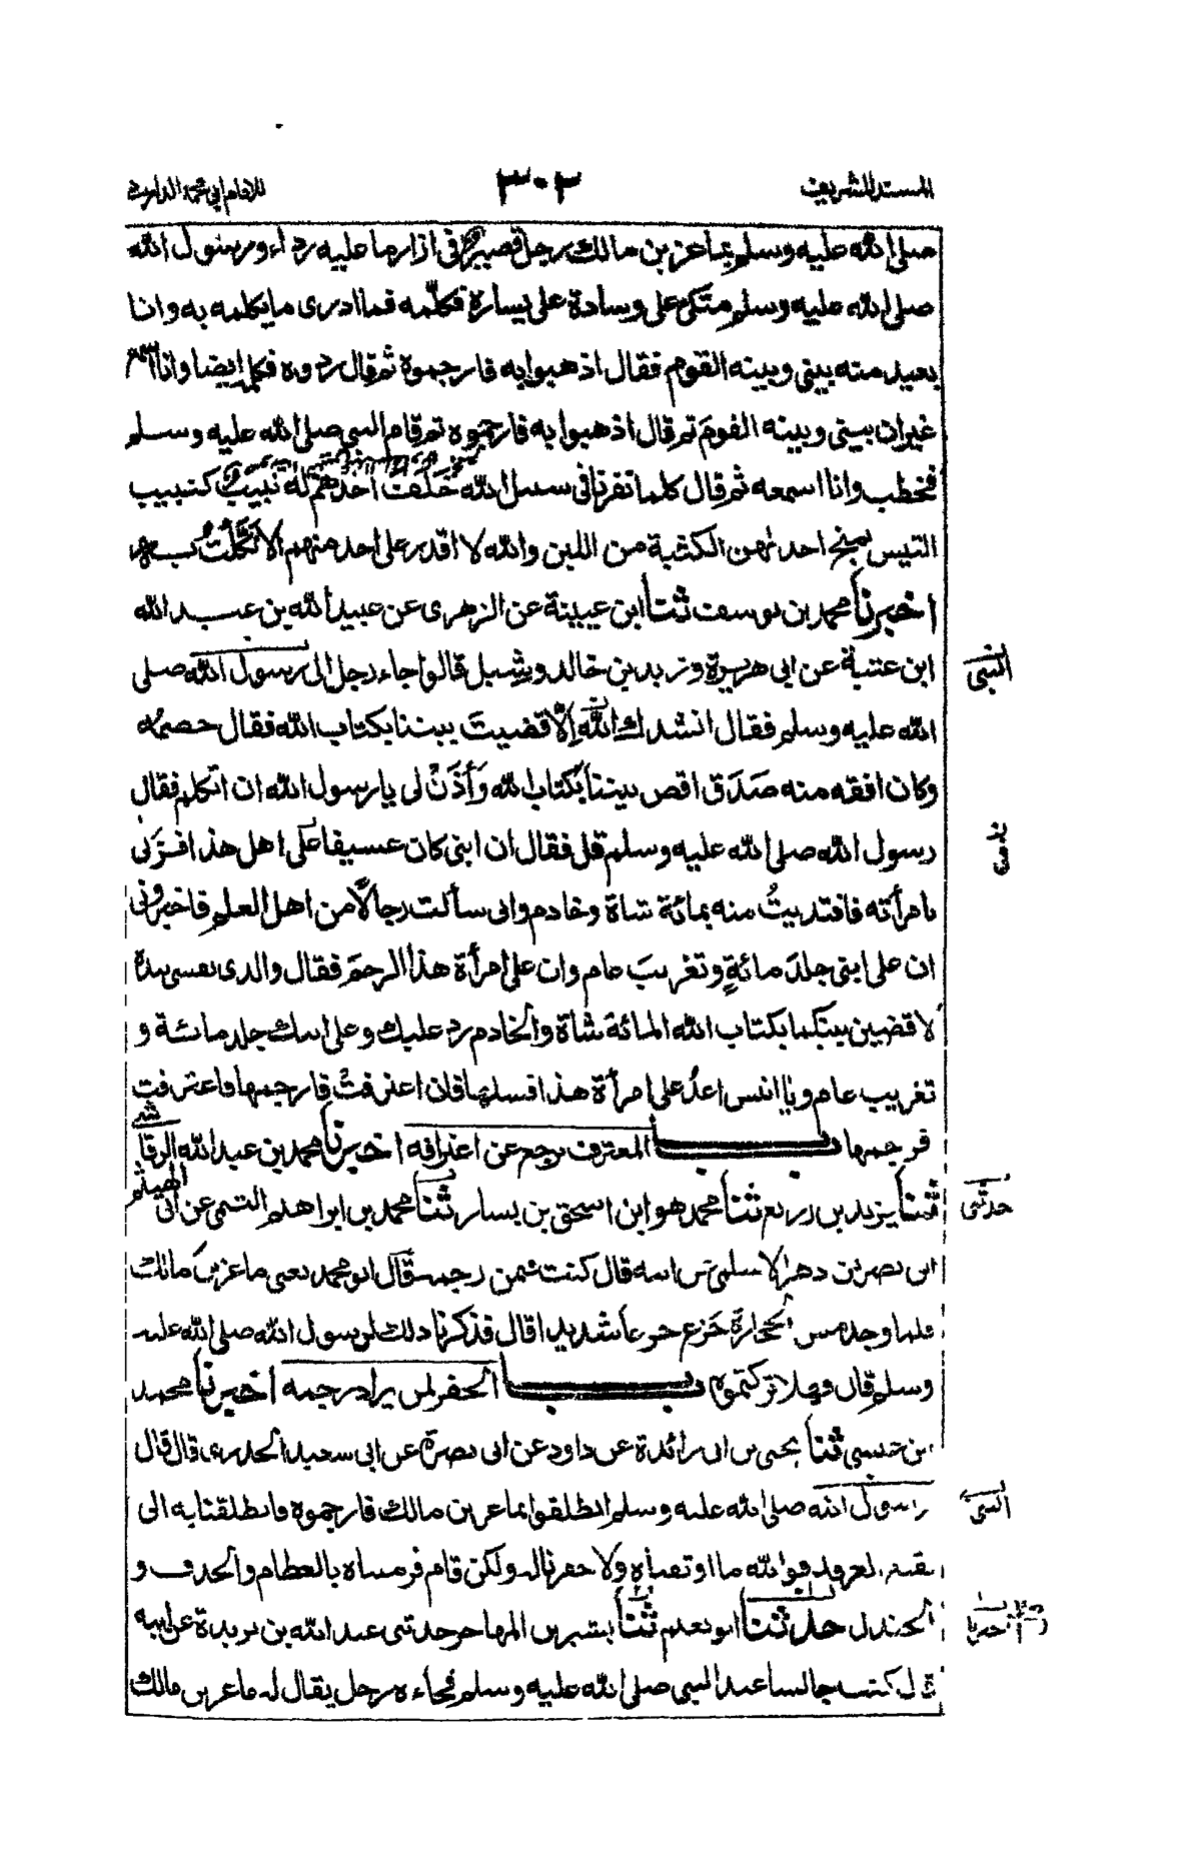 المسند الشريف ٣٠٢ للامام ابي محمد الدارمي
صلى الله عليه وسلم بماعز بن مالك رجل قصير في ازار ما عليه رداء ورسول الله
صلى الله عليه وسلم متكئ على وسادة على يساره فكلّمه فما ادرى ما يكلمه به وانا
بعيد منه بيني وبينه القوم فقال اذهبوا به فارجموه ثم قال ردوه فكلمه ايضا وانا اسمع
غير ان بيني وبينه القوم ثم قال اذهبوا به فارجموه ثم قام النبي صلى الله عليه وسلم
فخطب وانا اسمعه ثم قال كلما نفرنا في سبيل الله خَلَفَ احدهم له نبيب كنبيب
التيس يمنح احدٰهن الكثبة من اللبن والله لا اقدر على احد منهم الا نكّلت به
اخبرنا محمد بن يوسف ثنا ابن عيينة عن الزهرى عن عبيد الله بن عبد الله
ابن عتبة عن ابى هريرة وزيد بن خالد وشبل قالوا جاء رجل الى رسول الله صلى
النبي
الله عليه وسلم فقال انشدك الله الّا قضيتَ بيننا بكتاب الله فقال خصمُه
وكان افقه منه صَدَقَ اقض بيننا بكتاب الله وَأذَنْ لى يا رسول الله ان اتكلم فقال
رسول الله صلى الله عليه وسلم قل فقال ان ابنى كان عسيفا على اهل هذا فزنى
بامرأته فافتديتُ منه بمائة شاة وخادم وانى سألت رجالاً من اهل العلم فاخبرونى
ان على ابنى جلدَ مائةٍ وتغريبَ عام وان على امرأة هذا الرجمَ فقال والذى نفسى بيده
لاقضين بينكما بكتاب الله المائة شاة والخادم رد عليك وعلى ابنك جلد مائة و
تغريب عام ويا انيس اغدُ على امرأة هذا فسلها فان اعترفتْ فارجمها فاعترفت
فرجمها باب المعترف يرجع عن اعترافه اخبرنا محمد بن عبد الله الرقاشى
ثنا يزيد بن زريع ثنا محمد هو ابن اسحق بن يسار ثنا محمد بن ابراهيم التيمى عن ابى الهيثم
حدثنى
ابن نصر بن دهر الاسلمى عن ابيه قال كنت فيمن رجمه قال ابو محمد يعنى ماعز بن مالك
فلما وجد مس الحجارة جَزِع جزعا شديدا قال فذكرنا ذلك لرسول الله صلى الله عليه
وسلم قال فهلا تركتموه باب الحفر لمن يراد رجمه اخبرنا محمد
ابن عيسى ثنا يحيى بن ابى زائدة عن داود عن ابى نضرة عن ابى سعيد الخدرى قال قال
رسول الله صلى الله عليه وسلم انطلقوا بماعز بن مالك فارجموه فانطلقنا به الى
النبي
بقيع الغرقد فوالله ما اوثقناه ولا حفرنا له ولكن قام فرميناه بالعظام والخزف و
الجندل حدثنا ابو نعيم ثنا بشير بن المهاجر حدثنى عبد الله بن بريدة عن ابيه
اخبرنا
قال كنت جالسا عند النبى صلى الله عليه وسلم فجاءه رجل يقال له ماعز بن مالك